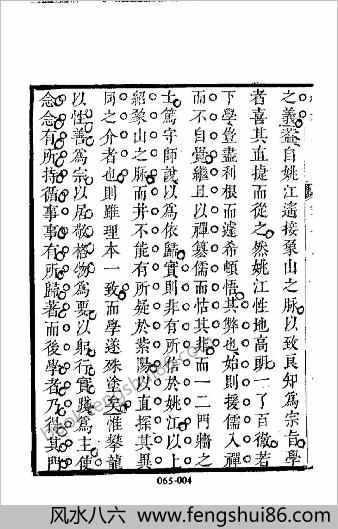 之義蓋自姚江遙接象山之脉以致良知爲宗旨學
者喜其直捷而從之然姚江性地高明一了百徹若
下學豈盡利根而遽希頓悟其弊也始則援儒入禪
而不自覺繼且以禪篡儒而怙其非而一二門牆之
士篤守師說以爲依歸實則非有所信於姚江以上
紹象山之脉而并不能有所疑於紫陽以直探其異
同之介者也則雖理本一致而學遂殊塗矣惟攀龍
以性善爲宗以居敬格物爲要以躬行實踐爲主使
念念有所持循事事有所歸著而後學者乃得其門
065-004
风水八六－www.fengshui86.com